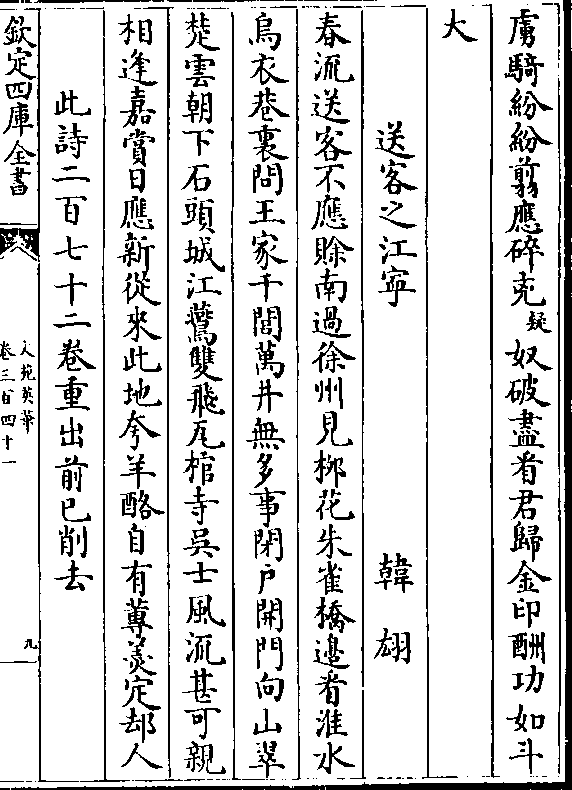 虜騎紛紛翦應碎克疑奴破盡看君歸金印酬功如斗
大
送客之江寧 韓翃
春流送客不應賒南過徐州見栁花朱雀橋邊看淮水
烏衣巷裏問王家千閭萬井無多事閉户開門向山翠
楚雲朝下石頭城江鷰雙飛瓦棺寺吳士風流甚可親
相逢嘉賞日應新從來此地夸羊酪自有蓴羮定却人
此詩二百七十二卷重出前已削去
欽定四庫全書
文苑英華
卷三百四十一
九